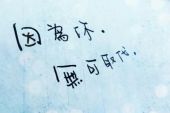 因為你.
無可取代.